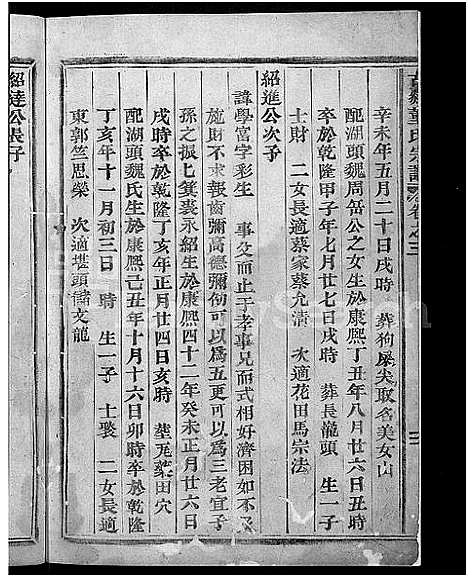 董氏宗譜 卷之三
三
辛未年五月二十日戌時 葬狗屎尖取名美女山
配湖頭魏周缶公之女生於康熙丁丑年八月廿六日丑時
卒於乾隆甲子年七月廿七日戌時 葬長龍頭 生一子
士財 二女長適蔡家蔡允清 次適花田馬宗法
紹進公次子
諱學富字彩生 事父而止于孝事兄而式相好濟困如不及
施財不求報齒彌高德彌卲可以為五更可以為三老宜子
孫之振七箕裘永紹生於康熙四十二年癸未正月廿六日
戌時卒於乾隆丁亥年正月廿四日亥時 塟瓦窰田穴
配湖頭魏氏生於康熙己丑年十月十六日卯時卒於乾隆
丁亥年十一月初三日 時 生一子 士褧 二女長適
東郭竺思榮 次適堪頭諸文龍
紹達公長子